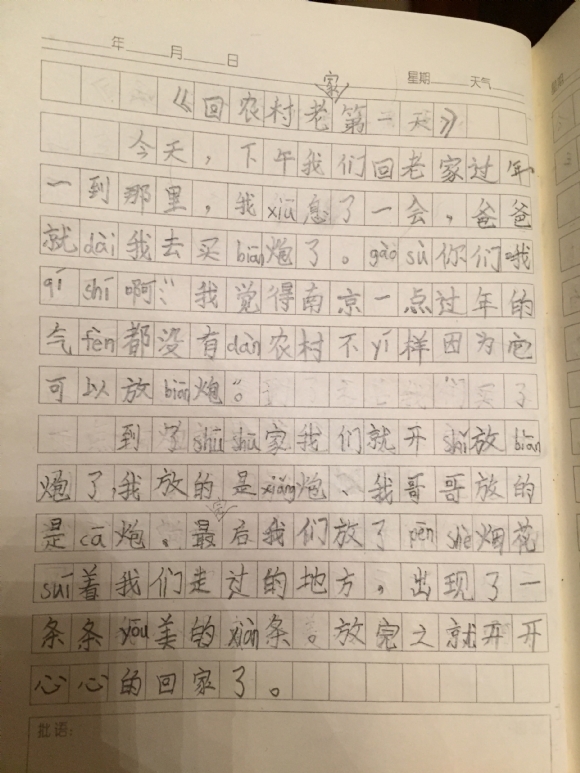 年 月 日 星期 天气
家
《回农村老第一天》
今天，下午我们回老家过年
一到那里，我xiū息了一会，爸爸
就dài我去买biān炮了。gào sù你们哦
qí shí啊：我觉得南京一点过年的
气fēn都没有dàn农村不yī样因为它
可以放biān炮。
到了shū shū家我们就开shǐ放biān
炮了，我放的是xiǎng炮、我哥哥放的
家
是cā炮。最后我们放了pēn shè烟花
suí着我们走过的地方，出现了一
条条yōu美的xiàn条。放完之就开开
心心的回家了。
批语：